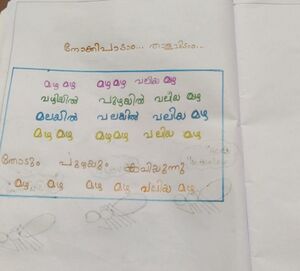 നോക്കിപാടാം... താളമിടാം...
മഴ മഴ മഴ മഴ വലിയ മഴ
വഴിയിൽ പുഴയിൽ വലിയ മഴ
മലയിൽ വലയിൽ വലിയ മഴ
മഴ മഴ മഴ മഴ വലിയ മഴ
തോടും പുഴയും കവിയുന്നു
മഴ മഴ മഴ മഴ വലിയ മഴ